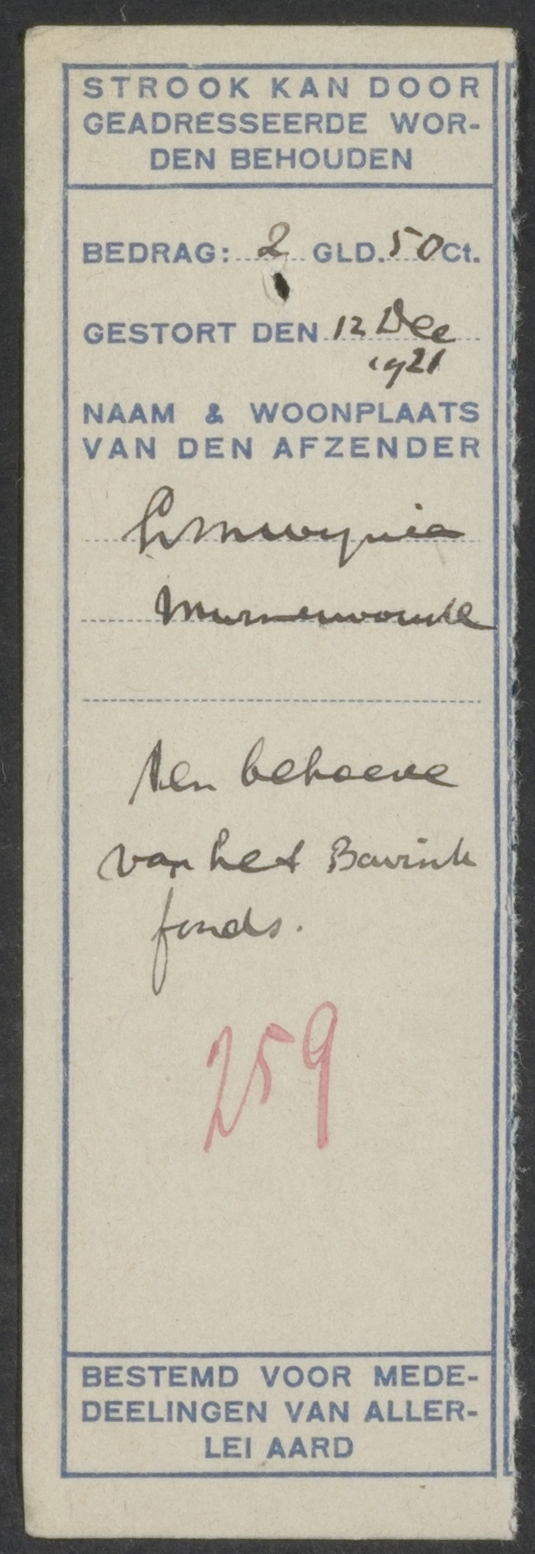 STROOK KAN DOOR
GEADRESSEERDE WOR-
DEN BEHOUDEN
BEDRAG: 2 GLD. 50 Ct.
GESTORT DEN 12 Dec
1921
NAAM & WOONPLAATS
VAN DEN AFZENDER
Murmerwoude
ten behoeve
van het Bavink
fonds.
259
BESTEMD VOOR MEDE-
DEELINGEN VAN ALLER-
LEI AARD